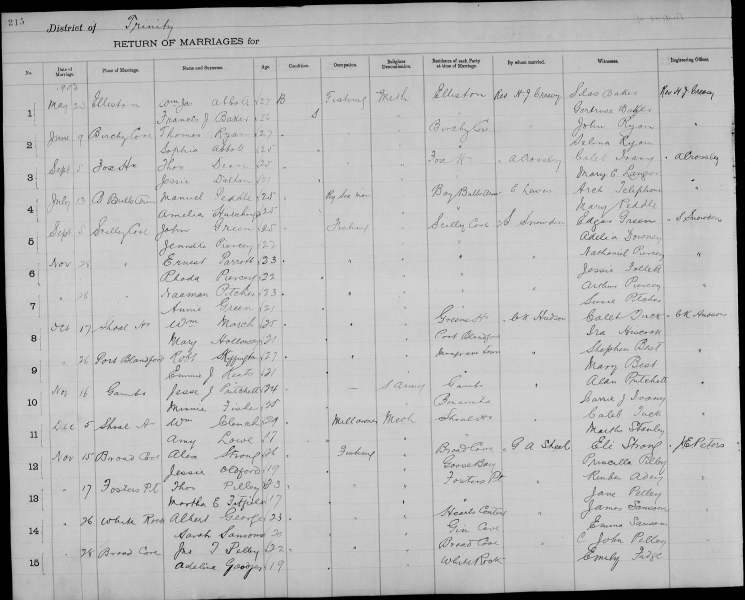 215
District of Trinity
RETURN OF MARRIAGES for
No. Date of Marriage. Place of Marriage. Name and Surname. Age. Condition. Occupation. Religious Denomination. Residence of each Party at time of Marriage. By whom married. Witnesses. Registering Officer.
May 23 Elliston Wm Jas Abbott 27 B Fishing Meth Elliston Rev H J Creasey Silas Baker Rev H J Creasey
1 Francis J Baker 26 S " Gertrude Baker
June 9 Birchy Cove Thomas Ryan 27 " Birchy Cove " John Ryan "
2 Sophia Abbott 25 " Selina Ryan
Sept 5 Fox Hr Thos Dean 25 " Fox Hr " A Crossley Calet Ivany " A Crossley
3 Jessie Dalton 21 " Mary E Langor
July 13 Manuel Peddle 25 " Ry Sec man " Bay Bulls Arm C Lewis Arch
4 Amelia 25 " Mary Reddle
Sept 5 Scilly Cove John Green 25 " Fishing " Scilly Cove S Snowden Edgar Green " S Snowden
5 Piercey 27 " Adelia Downey
Nov 28 " Ernest Parrott 23 " Nathaniel Piercey "
6 Rhoda Piercey 22 " Jessie Follett
" 28 " Naaman Pitcher 23 " Arthur Piercey "
7 Annie Green 21 " Susie Pitcher
Oct 17 Shoal Hr Wm March 25 " Greens Hr " C K Hudson Caleb Tuck " C K Hudson
8 Mary Holloway 21 Port Blandford Ira
" 26 Port Blandford Robt Skiffington 27 " Musgrave Town " Stephen Best "
9 Emmie J 21 " Mary Best
Nov 16 Gambo Jesse J Pritchett 24 " — S Army Gambo " Alan Pritchett "
10 Minnie Fisher 25 Bonavista Carrie J Ivany
Dec 5 Shoal Hr Wm Clench 29 " Millowner Meth Shoal Hr " Caleb Tuck "
11 Amy Lowe 27 " Martha Stanley
Nov 15 Broad Cove Alex Strong 26 " Fishing " Broad Cove " G A Eli Strong " J E Peters
12 Jessie Oldford 19 " Goose Bay Priscilla Pelley
" 17 Fosters Pt Thos Pelley 23 " Fosters Pt " Reuben Adey "
13 Martha E 17 " Jane Pelley
" 26 White Rock Albert George 23 " Hearts Content " James Sansom "
14 Sarah Sansom 20 " Gin Cove Emma Sansom
" 28 Broad Cove Jas T Pelley 22 " Broad Cove " C John Pelley "
15 Adelina 19 " White Rock Emily Fudge